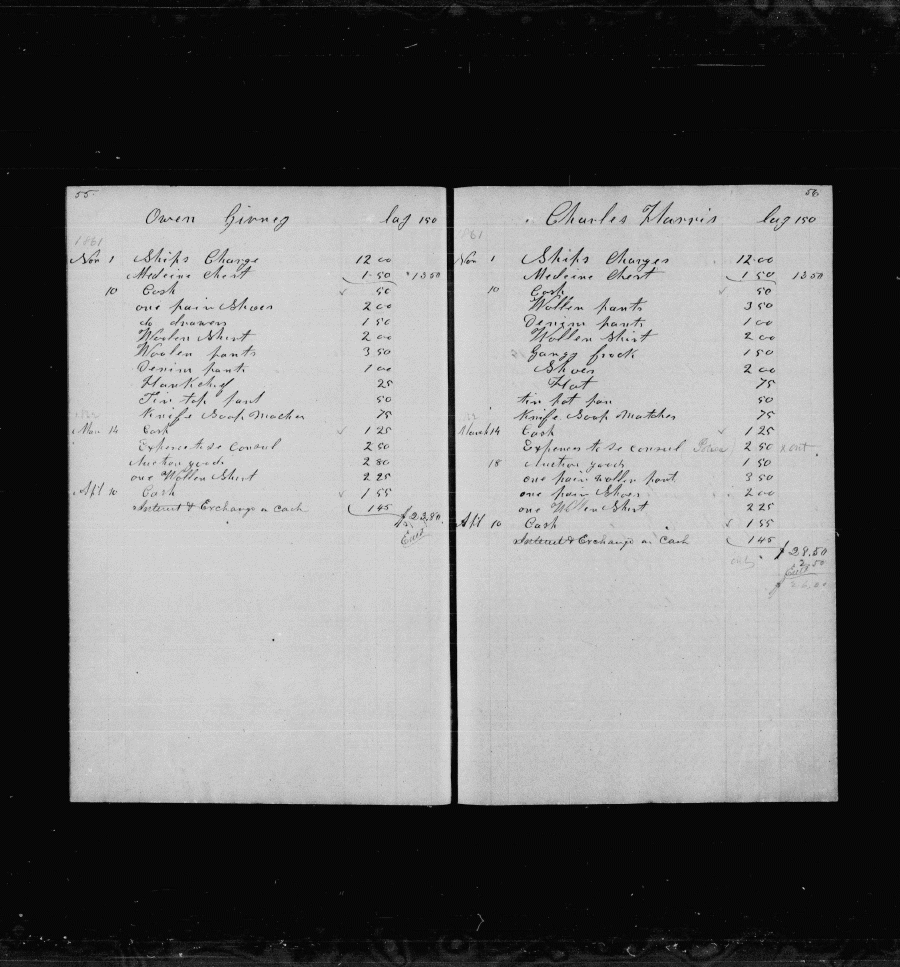 55
Owen Ginney lay 150
1861
Nov 1 Ships Charge 12 00
Medecine Chest 1.50 $13 50
10 Cash 50
one pair Shoes 2 00
do drawers 1 50
Woolen Shirt 2 00
Woolen pants 3 50
Denim pants 1 00
Hankchef 25
Tin top pant 50
Knife Soap Maches 75
Mar 14 Cash 1 25
Expence to se Consul 2 50
Auction goods 2 80
one Wollen Shirt 2 25
Apl 10 Cash 1 55
Interest & Exchange on Cash 1 45
$23.80
56
Charles Harris lay 150
1861
Nov 1 Ships Charges 12.00
Medecine Chest 1 50 13 50
10 Cash 50
Wollen pants 3 50
Denim pants 1 00
Wollen Shirt 2 00
frock 1 50
Shoes 2 00
Hat 75
tin pot pan 50
Knife Soap Matches 75
March 14 Cash 1 25
Expences to se Consul 2 50 x out
18 Auction goods 1 50
one pair wollen pant 3 50
one pair Shoes 2 00
one Wollen Shirt 2 25
Apl 10 Cash 1 55
Interest & Exchange on Cash 1 45
$28.50
2 50
$26.00